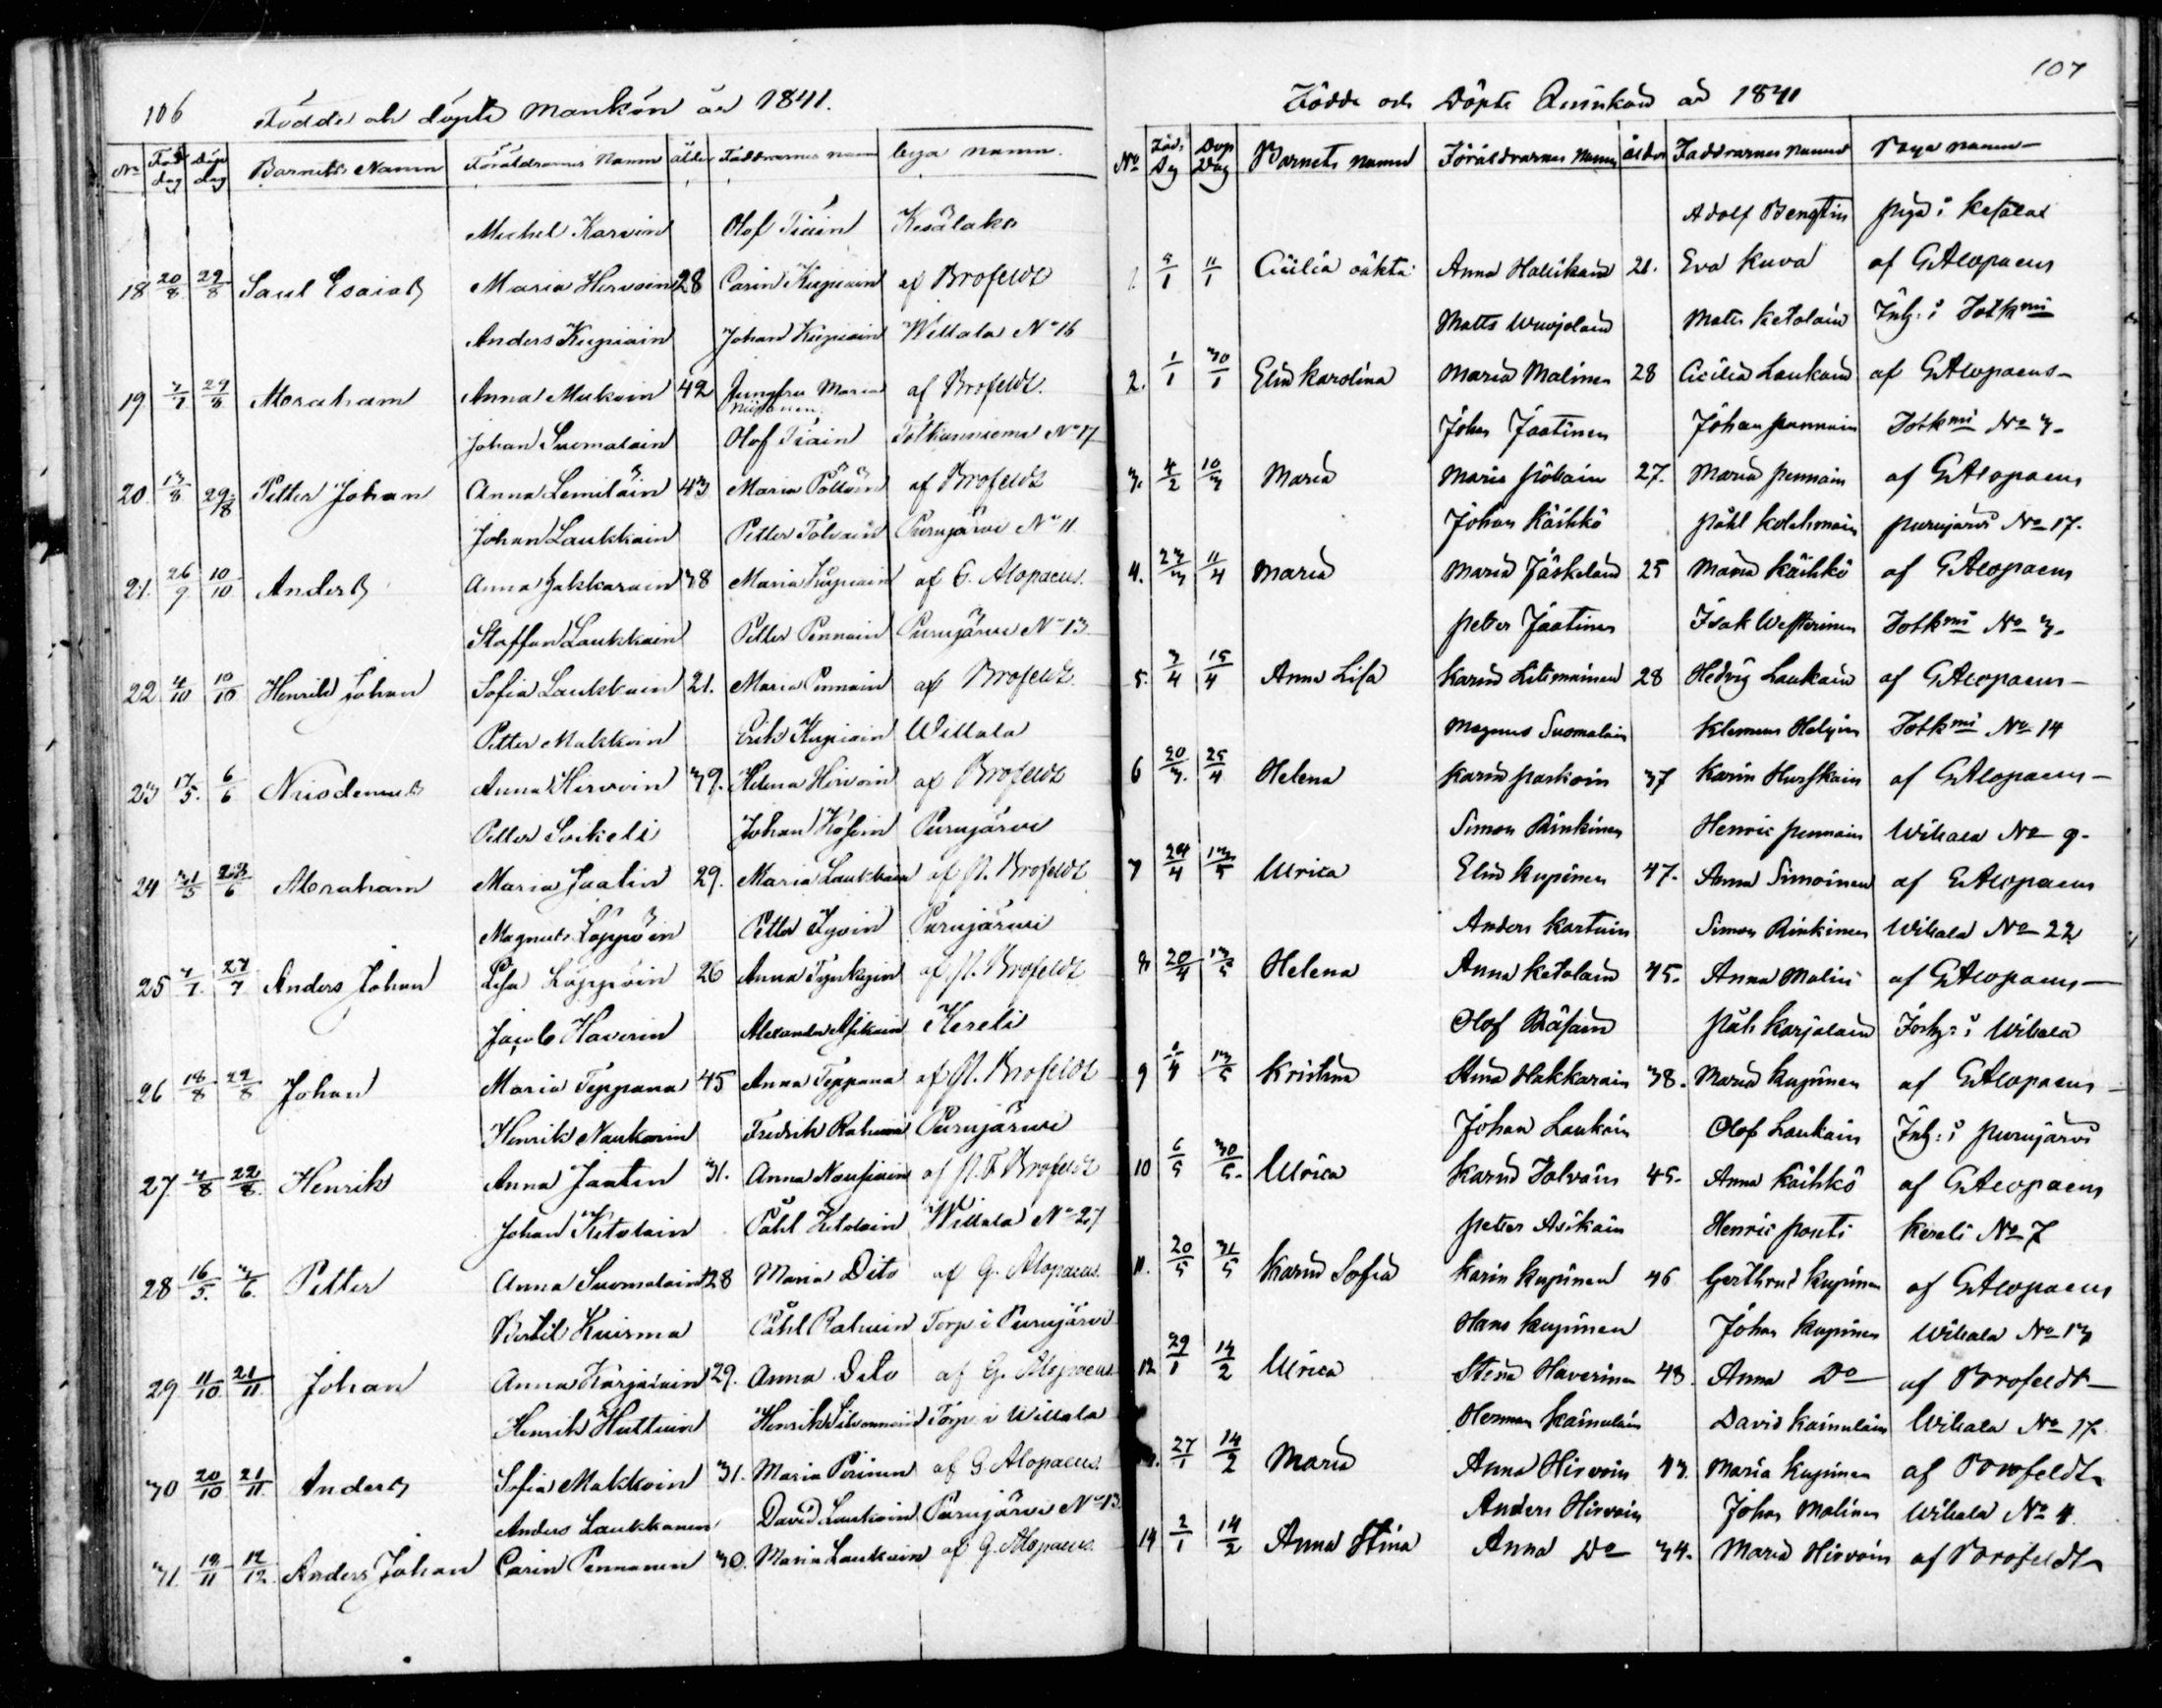 106 Födde och döpte Mankön år 1841.
No Föd dag Döp dag Barnets Namn Föräldrarnes Namn ålder Faddrarnes namn byanamn.
Michel Karvin Olof Tiäin Kesälaks
18 20/8 29/8 Saul Esaias Maria Hirvoin 28 Carin Kupiain af Brofeldt
Anders Kupiain Johan Kupiain Willala No 16
19 7/7 29/8 Abraham Anna Mukoin 42 Jungfru Maria af Brofeldt.
Johan Suomalain Olof Tiäin Totkunniemi No 17
20. 13/8 29/8 Petter Johan Anna Lemiläin 43 Maria Pöllöin af Brofeldt
Johan Laukkain Petter Tolvain Purujärvi No 11
21. 26/9 10/10 Anders Anna Jakkarain 38 Maria Kupiain af G. Alopaeus.
Staffan Laukkain Petter Pennain Purujärvi No 13
22 4/10 10/10 Henrik Johan Sofia Laukkain 21. Maria Pennain af Brofeldt
Petter Makkoin Erik Kupiain Willala
23 17/5. 6/6 Nicodemus Anna Hirvoin 39. Helena Hirvoin af Brofeldt
Petter Soikeli Johan Purujärvi
24 31/5 23/6 Abraham Maria Jaatin 29. Maria Laukkain af N. Brofeldt
Magnus Löppöin Petter Purujärvi
25 7/7. 27/7 Anders Johan Lisa Löppöin 26 Anna af N. Brofeldt
Jacob Haverin Alexander Asikain Kereli
26 18/8 22/8 Johan Maria Teppana 45 Anna Teppana af N. Brofeldt
Henrik Naukarin Fredrik Rahuin Purujärvi
27. 4/8 22/8. Henrik Anna Jaatin 31. Anna Nousiain af N. F. Brofeldt
Johan Ketolain Påhl Ketolain Willala No 27
28 16/5. 3/6. Petter Anna Suomalain 28 Maria Dito af G. Alopaeus.
Bertil Kuisma Påhl Rahuin Torp i Purujärvi
29 11/10 21/11 Johan Anna Karjalain 29. Anna Dito af G. Alopaeus
Henrik Huttuin Henrik Torp i Willala
30 20/10 21/11. Anders Sofia Makkoin 31. Maria Pirinen af G. Alopaeus.
Anders Laukkanen David Laukain Purujärvi No 13
31. 12/12. Anders Johan Carin Pennanen 30. Maria Laukain af G. Alopaeus.
107
Födde och Döpte Qvinkön år 1841
No Föd: Dag Dop Dag Barnets namn Föräldrarnes Namn ålder Faddrarnes namn Byanamn
Adolf Bengtin piga i Kesälax
1. 5/1 11/1 Cicilia oäkta Anna Halikain 21. Eva Kuva af GAlopaeus
Matts Wuojolain Matts Ketolain Inh: i Totkmi
2. 1/1 30/1 Elin Karolina Maria Malinen 28 Cicilia Laukain af GAlopaeus
Johan Jaatinen Johan pennain Totkmi No 3.
3. 4/2 10/3 Maria Maria 27. Maria pennain af GAlopaeus
Johan Käihkö påhl Kolehmain purujärvi No 17.
4. 23/3 11/4 Maria Maria Jäskeläin 25 Maria Käihkö af GAlopaeus
petter Jaatinen Isak Westerinen Totkmi No 3.
5. 3/4 15/4 Anna Lisa Karin Litimainen 28 Hedvig Laukain af GAlopaeus
Magnus Suomalain Klemens Halyin Totkmi No 14
6 20/3. 25/4 Helena Karin paskoin 37 Karin Hurskain af GAlopaeus
Simon Rinkinen Henric pennain Wilala No 9.
7 24/4 13/5 Ulrica Elin Kupinen 47. Anna Simoinen af GAlopaeus
Anders Kartuin Simon Rinkinen Wilala No 22
8 20/4 13/5 Helena Anna Ketolain 45. Anna Malin af GAlopaeus
Olof Räsäin påhl Karjalain Torp: i Wilala
9 13/5 Kristina Stina Hakkarain 38. Maria Kupinen af GAlopaeus
Johan Laukain Olof Laukain Inh: i purujärvi
10 6/5 30/5. Ulrica Karin Tolvain 45. Anna Käihkö af GAlopaeus
petter Asikain Henric ponti Kereli No 7
11. 20/5 31/5 Karin Sofia Karin Kupinen 46 Gerthrud Kupinen af GAlopaeus
Hans Kupinen Johan Kupinen Wilala No 13
12 29/1 14/2 Ulrica Stina Haverinen 43. Anna Do af Brofeldt
Herman Kainulain David Kainulain Wilala No 17.
27/1 14/2 Maria Anna Hirvoin 43. Maria Kupinen af Brofeldt
Anders Hirvoin Johan Malinen Wilala No 4.
14 2/1 14/2 Anna Stina Anna Do 34. Maria Hirvoin af Brofeldt